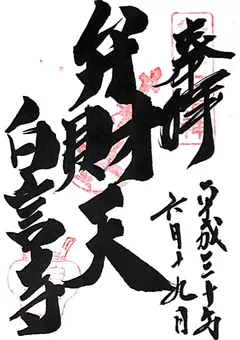 奉拝
平成三十年
六月十九月
弁財天
白言寺